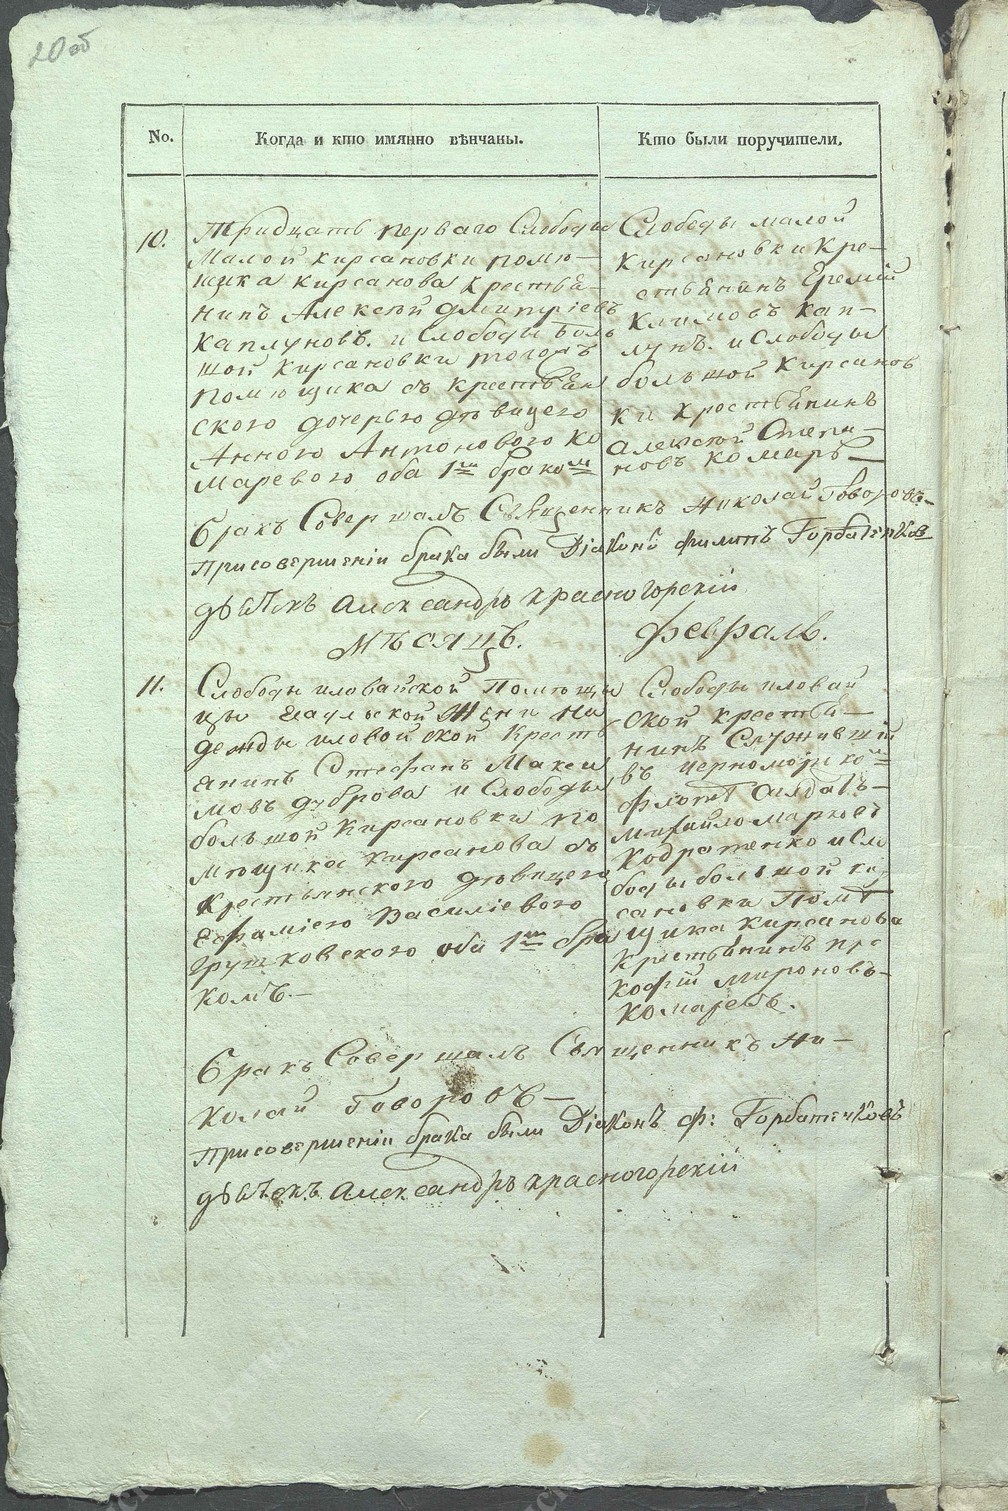 20 об
No. Когда и кто имянно вѣнчаны. Кто были поручители.
10. Тридцать перваго Слободы
Малой Кирсановки поме-
щика Кирсанова крестья-
нинъ Алексѣй Дмитріевъ
Каплуновъ. и Слободы Боль
шой Кирсановки тогожъ
помещика съ крестьян
скою дочерью дѣвицею
Анною Антоновою Ко
маревою оба 1мъ бракомъ
Слободы малой
Кирсановки Кре-
стьянинъ Еремій
Климовъ Кап-
лунъ. и Слободы
большой Кирсанов
ки крестьянинъ
Алексѣй Степа-
новъ Комаръ
Бракъ Совершалъ Священникъ Николай Говоровъ
Присовершеніи брака были Діаконъ Филипъ Горбатенковъ
дьячекъ Александръ Красногорскій
Мѣсяцъ. Февраль.
11. Слободы иловайской Помѣщи
цы Есаульской Жены На
дежды иловайской Кресть
янинъ Стефанъ Макси
мовъ Дуброва и Слободы
большой Кирсановки по
мѣщика Кирсанова съ
Крестьянскою дѣвицею
Ефиміею Василіевою
Грушковскою оба 1мъ бра
комъ.-
Слободы иловай
ской крестья-
нинъ Служившій
въ черноморском
флотѣ Салдатъ-
Михайло Марковъ
Кодратенко и Сло
боды большой кир
сановки Помѣ
щика Кирсанова
Крестьянинъ про
кофій Мироновъ-
Комаревъ.
Бракъ Совершалъ Священникъ Ни-
колай Говоровъ-
Присовершеніи брака были Діаконъ Ф: Горбатенковъ
дьячекъ Александръ Красногорскій